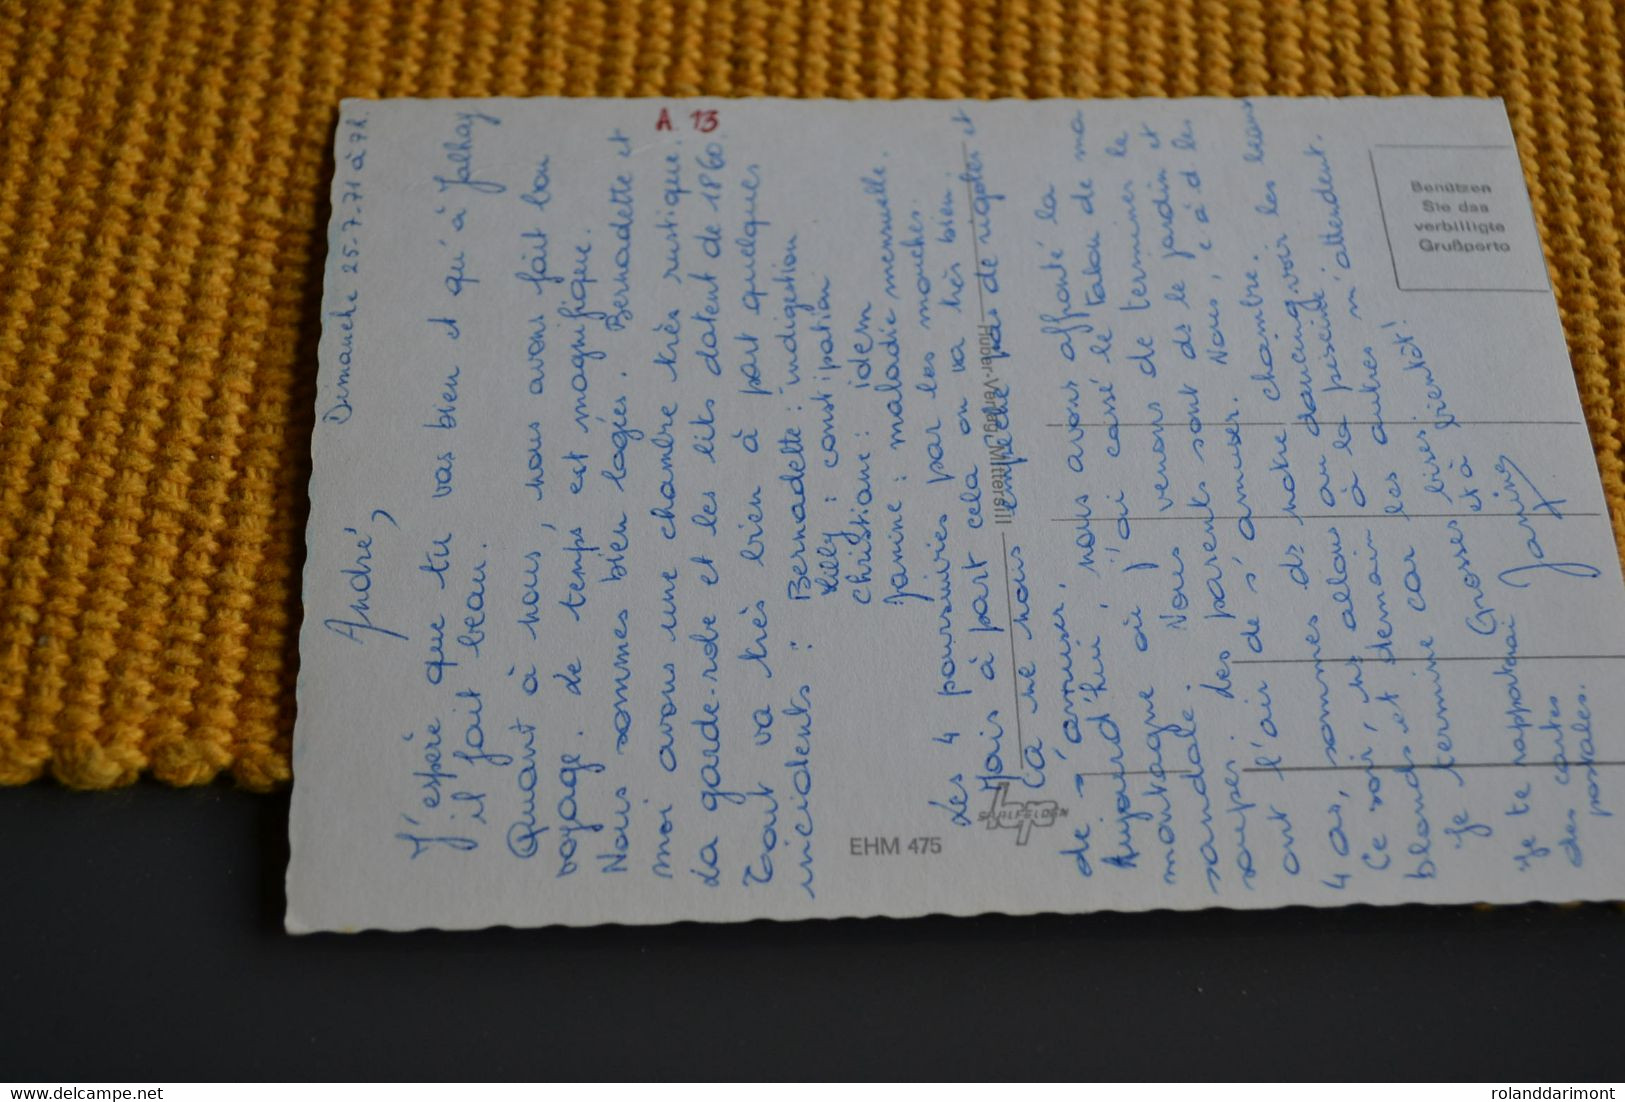 Dimanche 25.7.71 à 7h.
André,
J'espère que tu vas bien et qu'à Jalhay
il fait beau.
Quant à nous, nous avons fait bon
voyage. de temps est magnifique.
Nous sommes bien logées. Bernadette et
moi avons une chambre très rustique.
A 13
La garde-robe et les lits datent de 1860.
Tout va très bien à part quelques
incidents : Bernadette : indigestion
Lily : constipation
Christiane : idem
Janine : maladie mensuelle.
Les 4 poursuivies par les mouches.
Mais à part cela on va très bien.
Ça ne nous empêche pas de rigoler et
de s'amuser.
Aujourd'hui, nous avons affronté la
montagne où j'ai cassé le talon de ma
sandale. Nous venons de terminer le
souper. des parents sont ds le jardin et
ont l'air de s'amuser. Nous, c à d les
4 as, sommes ds notre chambre.
Ce soir, ns allons au dancing voir les beaux
blonds et demain à la piscine.
Je termine car les autres m'attendent.
Grosses bises
et à bientôt!
Janine
Je te rapporterai
des cartes
postales.
EHM 475
SAALFELDEN
Huber-Verlag, Mittersill
Benützen
Sie das
verbilligte
Grußporto
Delcampe.net
rolanddarimont